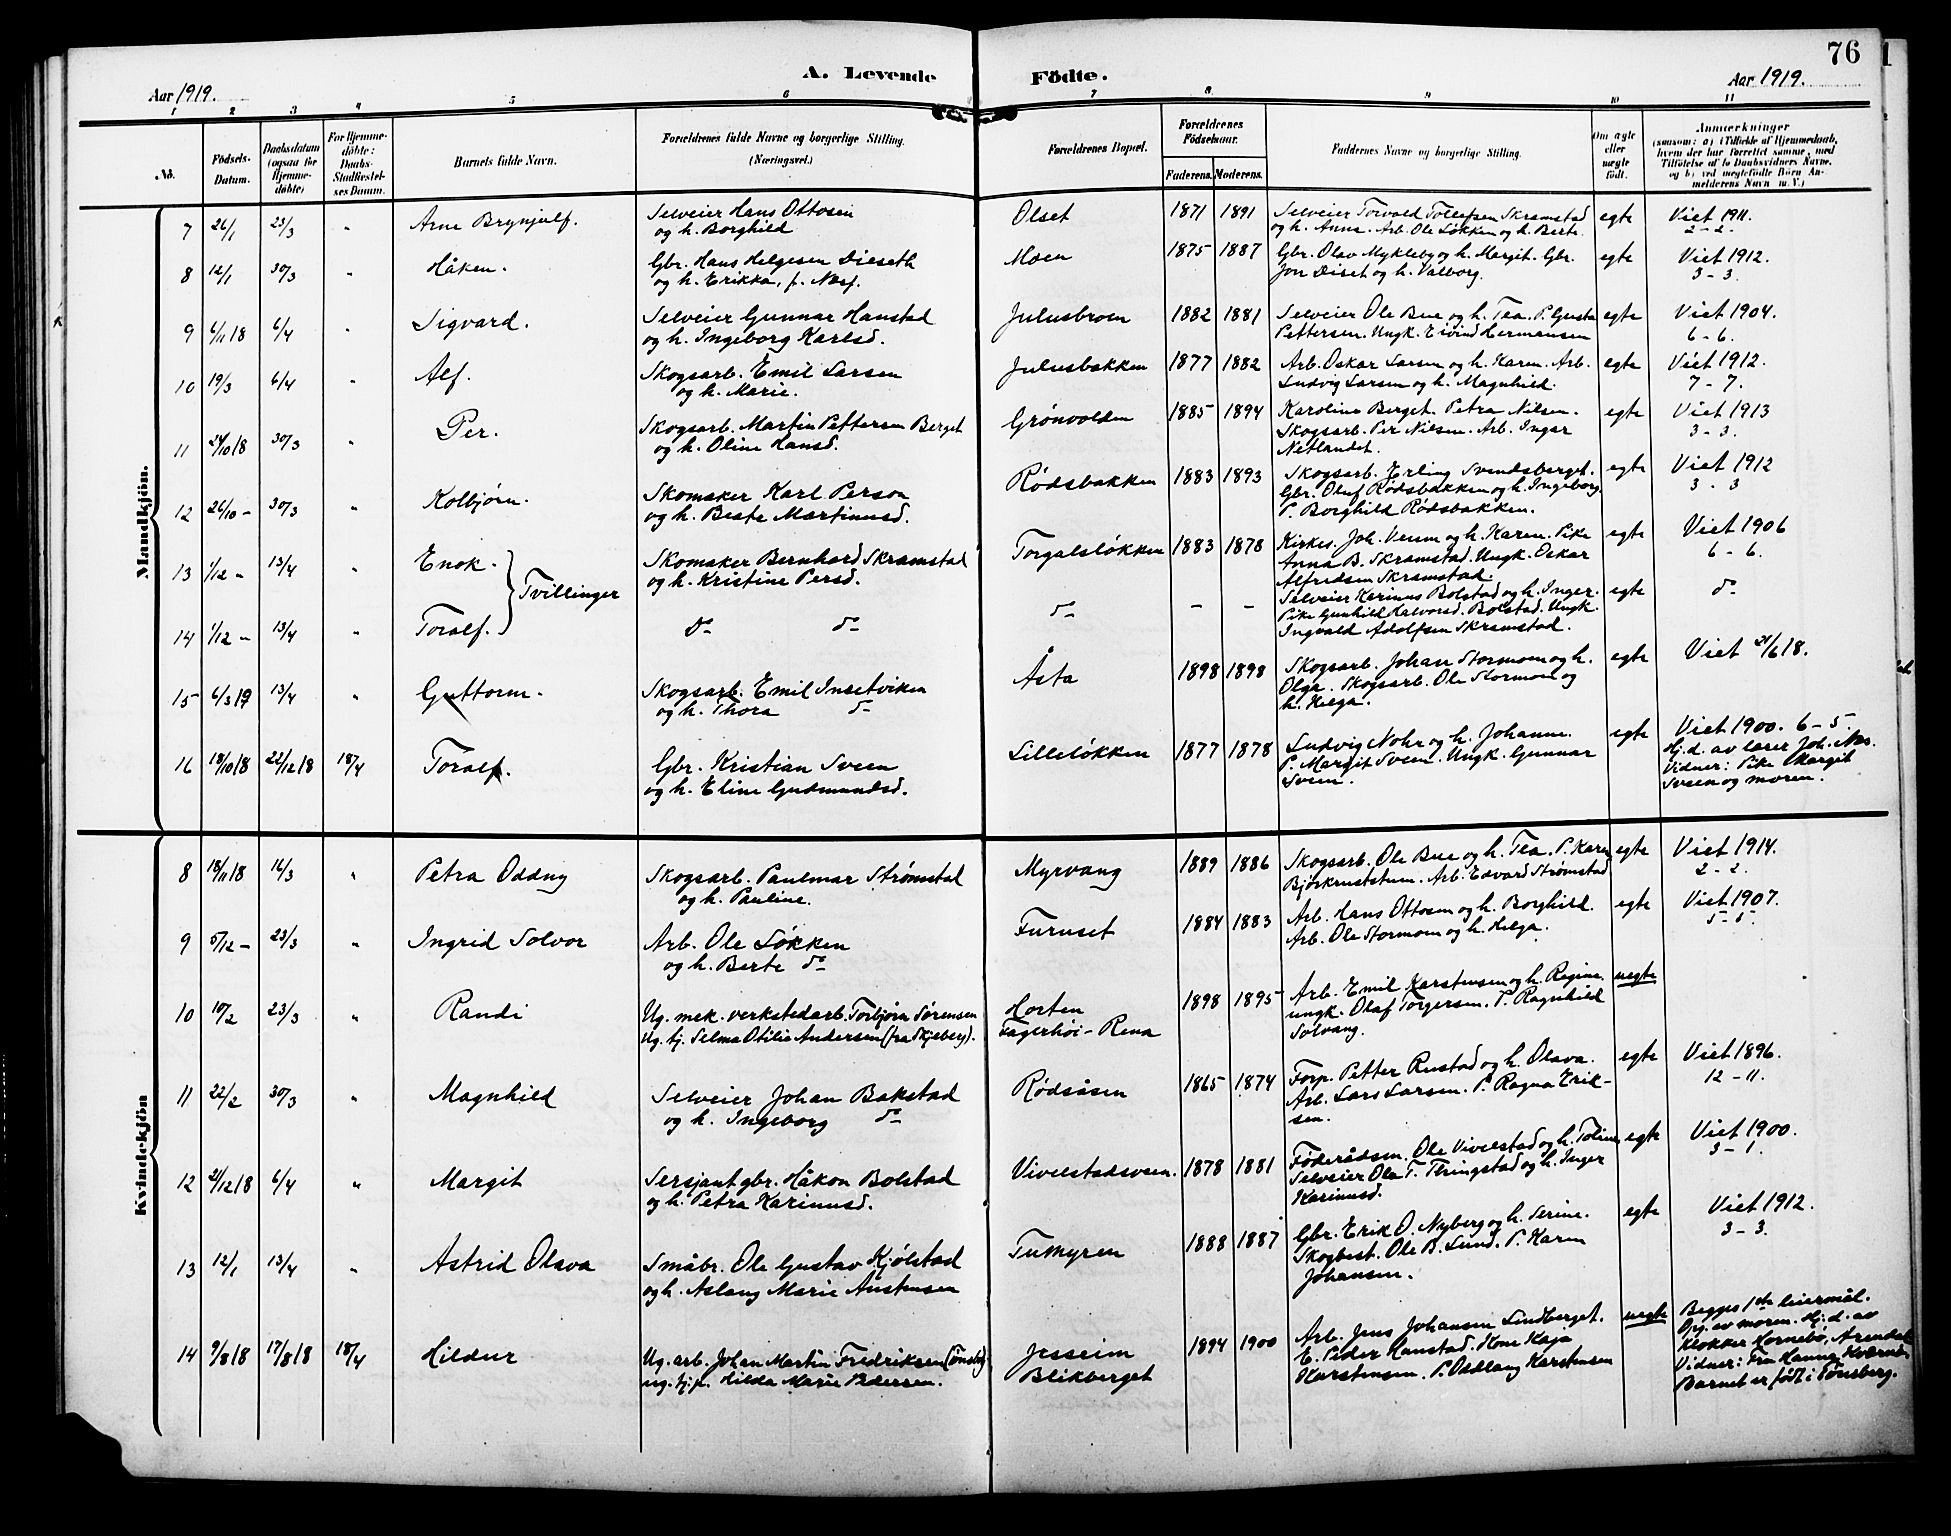 76
A. Levende Födte.
Aar 1919. Aar 1919.
1 2 3 4 5 6 7 8 9 10 11
No.
Födsels-Datum.
Daabsdatum (ogsaa for Hjemme-døbte)
For Hjemme-døbte: Daabs-Stadfæstel-ses Datum.
Barnets fulde Navn.
Forældrenes fulde Navne og borgerlige Stilling. (Næringsvei.)
Forældrenes Bopæl.
Forældrenes Födselsaar.
Faderens. Moderens.
Faddernes Navne og borgerlige Stilling.
Om ægte eller uægte födt.
Anmærkninger
(saasom: a) i Tilfælde af Hjemmedaab, hvem der har forrettet samme, med Tilföielse af to Daabsvidners Navne, og b) ved uægtefödte Börn An-melderens Navn m. V.)
Mandkjön.
7 26/1 23/3 " Arne Brynjulf. Selveier Hans Ottosen og h. Borghild Olset 1871 1891 Selveier Torvald Tollefsen Skramstad og h. Anna. Arb. Ole Løkken og h. Berte. egte Viet 1911. 2-2.
8 12/1 30/3 " Håken. Gbr. Hans Helgesen Dieseth og h. Erikka, f. Næsf. Moen 1875 1887 Gbr. Olav Mykleby og h. Margit. Gbr. Jon Diset og h. Valborg. egte Viet 1912. 3-3.
9 6/11 18 6/4 " Sigvard. Selveier Gunnar Hanstad og h. Ingeborg Karlsd. Julusbroen 1882 1881 Selveier Ole Bue og h. Tea. P. Gusta Pettersen. Ungk. Eivind Hermansen egte Viet 1904. 6-6.
10 19/3 6/4 " Alf. Skogsarb. Emil Larsen og h. Marie. Julusbakken 1877 1882 Arb. Oskar Larsen og h. Karen. Arb. Ludvig Larsen og h. Magnhild. egte Viet 1912. 7-7.
11 24/10 18 30/3 " Per. Skogsarb. Martin Pettersen Berget og h. Oline Hansd. Grönvolden 1885 1894 Karoline Berget. Petra Nilsen. Skogsarb. Per Nilsen. Arb. Ingar Netlandet. egte Viet 1913 3-3.
12 26/10 - 30/3 " Kolbjørn. Skomaker Karl Person og h. Beate Martinusd. Rødsbakken 1883 1893 Skogsarb. Erling Svendsberget. Gbr. Oluf Rødsbakken og h. Ingeborg. P. Borghild Rødsbakken. egte Viet 1912 3-3
13 1/12 " 13/4 " Enok. Skomaker Bernhard Skramstad og h. Kristine Persd. Torgalsløkken 1883 1878 Kirkes. Joh. Venum og h. Karen. Pike Anna B. Skramstad. Ungk. Oskar Alfredsen Skramstad. egte Viet 1906 6-6.
Tvillinger
14 1/12 - 13/4 " Toralf. do do do - - Selveier Karinus Bolstad og h. Inger. Pike Gunhild Halvorsd. Bolstad. Ungk. Ingvald Adolfsen Skramstad. egte do
15 6/3 19 13/4 " Guttorm. Skogsarb. Emil Insetviken og h. Thora do Åsta 1898 1898 Skogsarb. Johan Stormoen og h. Olga. Skogsarb. Ole Stormoen og h. Helga. egte Viet 21/6 18.
16 18/10 18 22/12 18 18/4 Toralf. Gbr. Kristian Sveen og h. Eline Gudmundsd. Lilleløkken 1877 1878 Ludvig Nohr og h. Johanne. P. Margit Sveen. Ungk. Gunnar Sveen. egte Viet 1900. 6-5. Hj.d. av lærer Joh. Næs. Vidner: Pike Margit Sveen og moren.
Kvindekjön
8 18/11 18 16/3 " Petra Oddny Skogsarb. Paulmar Strømstad og h. Pauline. Myrvang 1889 1886 Skogsarb. Ole Bue og h. Tea. P. Karen Bjørkruststuen. Arb. Edvard Strømstad egte Viet 1914. 2-2.
9 5/12 - 23/3 " Ingrid Solvor Arb. Ole Løkken og h. Berte do Furuset 1884 1883 Arb. Hans Ottosen og h. Borghild. Arb. Ole Stormoen og h. Helga. egte Viet 1907. 5-5.
10 10/2 23/3 " Randi Ug. mek. verkstedarb. Torbjørn Sørensen Ug. tj. Selma Otilie Andersen (fra Skjeberg). Horten Fagerhöi - Rena 1898 1895 Arb. Emil Karstensen og h. Regine. ungk. Olaf Torgersen. P. Ragnhild Solvang. uegte
11 22/2 30/3 " Magnhild Selveier Johan Bakstad og h. Ingeborg do Rødsåsen 1865 1874 Forp. Petter Rustad og h. Olava. Arb. Lars Larsen. P. Ragna Erik-sen. egte Viet 1896. 12-11.
12 2/12 18 6/4 " Margit Sersjant gbr. Håkon Bolstad og h. Petra Karinusd. Vivelstadsveen. 1878 1881 Føderådsm. Ole Vivelstad og h. Toline Selveier Ole T. Thringstad og h. Inger Karinusd. egte Viet 1900. 3-1.
13 12/1 13/4 " Astrid Olava Småbr. Ole Gustav Kjølstad og h. Aslaug Marie Austensen Tumyren 1888 1887 Gbr. Erik O. Nyberg og h. Serine. Skogbest. Ole B. Lund. P. Karen Johansen. egte Viet 1912. 3-3.
14 9/8 18 17/8 18 18/4 Hildur Ug. arb. Johan Martin Fredriksen (Tönsbg) ug. tj.p. Hilda Marie Pedersen. Jesseim Blikberget 1894 1900 Arb. Jens Johansen Lindberget. E. Peder Hanstad. Kone Kaja Karstensen. P. Oddlaug Karstensen uegte Begges 1ste leiermål. Opg. av moren. Hj.d. av Klokker Hornebö, Arendal Vidner: Fru Hanna Kværnø. Barnet er født i Tønsberg.